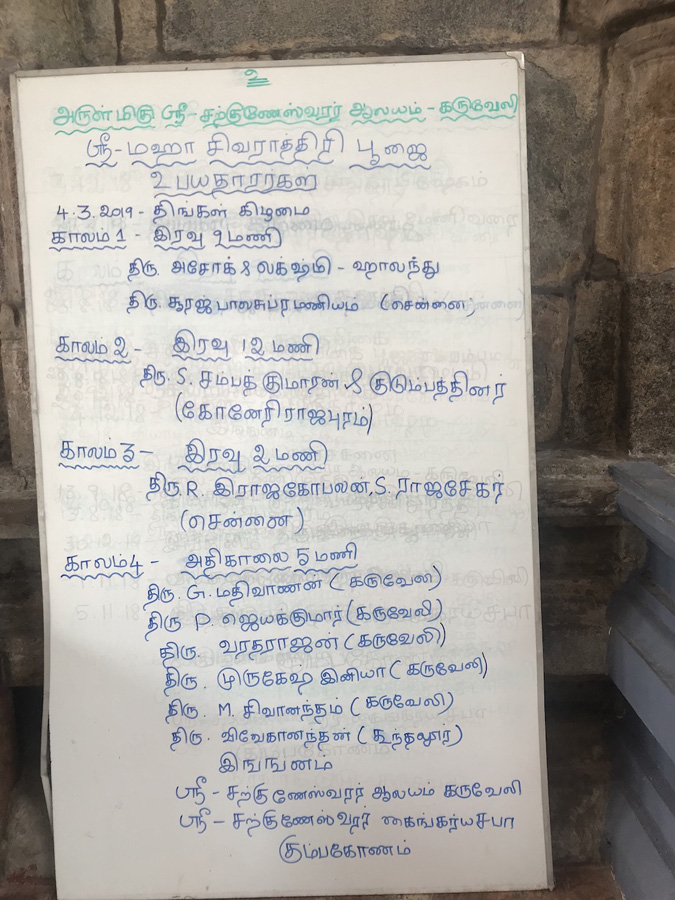 உ
அருள்மிகு ஸ்ரீ-சற்குணேஸ்வரர் ஆலயம் - கருவேலி
ஸ்ரீ-மஹா சிவராத்திரி பூஜை
உபயதாரர்கள்
4.3.2019 - திங்கள் கிழமை
காலம் 1 - இரவு 9 மணி
திரு. அசோக் & லக்ஷ்மி - ஹாலந்து
திரு. சூரஜ் பாலசுப்ரமணியம் (சென்னை)
காலம் 2 - இரவு 12 மணி
திரு. S. சம்பத் குமாரன் & குடும்பத்தினர்
(கோனேரிராஜபுரம்)
காலம் 3 - இரவு 2 மணி
திரு. R. இராஜகோபாலன், S. ராஜசேகர்
(சென்னை)
காலம் 4 - அதிகாலை 5 மணி
திரு. G. மதிவாணன் (கருவேலி)
திரு P. ஜெயக்குமார் (கருவேலி)
திரு. வரதராஜன் (கருவேலி)
திரு. முருகேஷ் இனியா (கருவேலி)
திரு. M. சிவானந்தம் (கருவேலி)
திரு. விவேகானந்தன் (கூந்தலூர்)
இங்ஙனம்
ஸ்ரீ - சற்குணேஸ்வரர் ஆலயம் கருவேலி
ஸ்ரீ - சற்குணேஸ்வரர் கைங்கர்யசபா
கும்பகோணம்